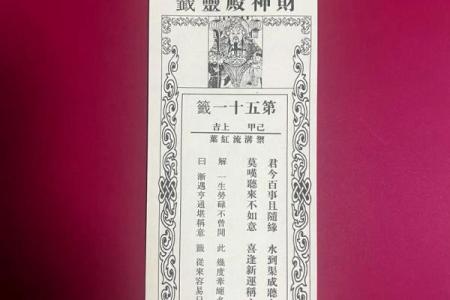 財神殿靈籤
第五十一籤
己甲 上吉
禦溝流紅葉
君今百事且隨緣 水到渠成聽
莫嘆聽來不如意 喜逢新運稱
解 一生勞碌不曾閒 此 幾度牽纏
曰 漸遇亨通堪稱意 籤 從來容易